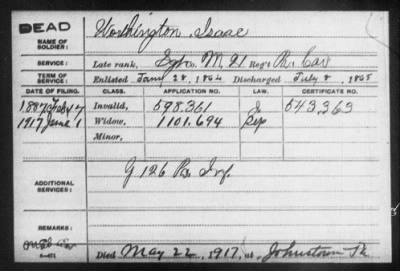 DEAD
NAME OF SOLDIER: Worthington, Isaac
SERVICE: Late rank, Co. M, 21 Reg't Pa. Cav
TERM OF SERVICE: Enlisted Jany 28, 1864 Discharged July 8, 1865
DATE OF FILING. CLASS. APPLICATION NO. LAW. CERTIFICATE NO.
1887 Feby 7 Invalid, 598.361 543.363
1917 June 1 Widow, 1101.694
Minor,
ADDITIONAL SERVICES: G 126 Pa. Inf.
REMARKS:
Died May 22, 1917, at Johnstown Pa